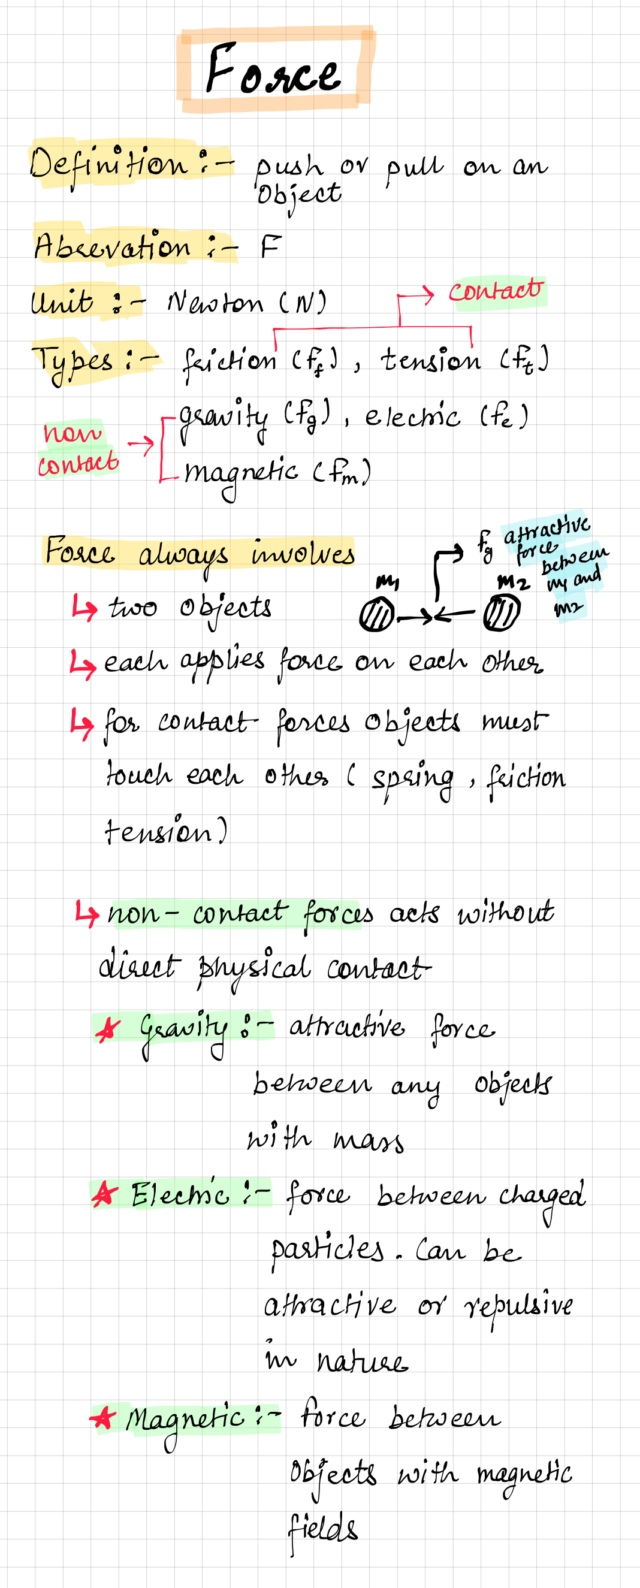 Force
Definition :- push or pull on an
Object
Abrevation :- F
Unit :- Newton (N)
contact
Types :- friction (ff), tension (ft)
gravity (fg), electric (fe)
non
contact
magnetic (fm)
Force always involves
fg attractive
force
between
m1 and
m2
m1
m2
↳ two objects
↳ each applies force on each other
↳ for contact forces objects must
touch each other ( spring, friction
tension)
↳ non-contact forces acts without
direct physical contact
★ Gravity :- attractive force
between any objects
with mass
★ Electric :- force between charged
particles. Can be
attractive or repulsive
in nature
★ Magnetic :- force between
Objects with magnetic
fields